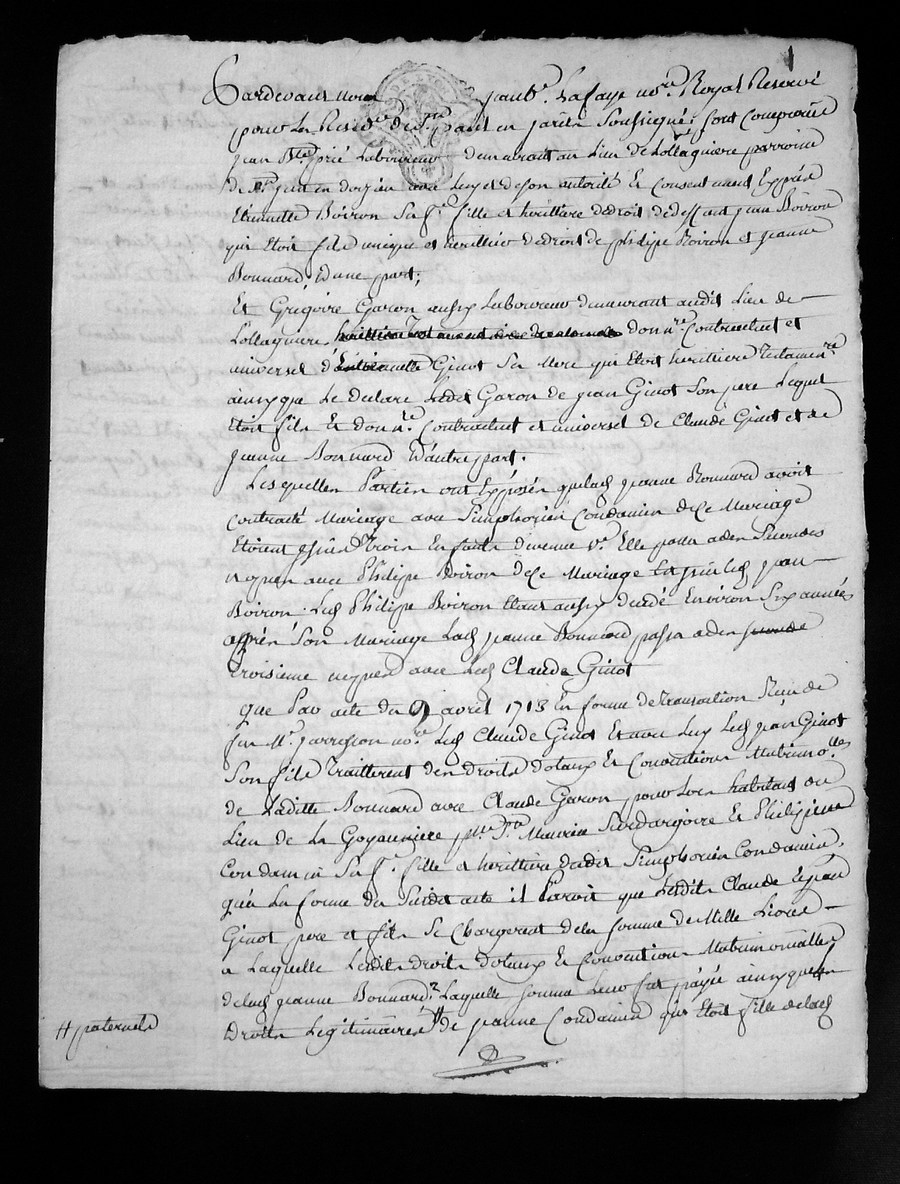 1
Pardevant nous Jean Bte. Lafaye nore. Royal Reservé
pour la Resid.ce de St. paul en jarês Soussigné; sont comparûs
jean Bte. prié Laboureur demeurant au Lieu de Lollagniere parroisse
De St. jean en doizieu avec Luy et de son autorité Et Consentement Exprès
Etiennette Boiron Sa fe. fille et heritiere de droit de deffunt jean Boiron
qui Etoit fils unique et heritier de droit de philipe Boiron et jeanne
Bonnard, D'une part;
Et Grégoire Garon aussy Laboureur demeurant audit Lieu de
Lollagniere don.re Contractuel et
universel d'Etiennette Ginot Sa Mere qui Etoit heritiere Testamen.re
ainsy que Le declare Ledit Garon de jean Ginot Son pere Lequel
Etoit fils Et don.re Contractuel et universel de Claude Ginot et de
jeanne Bonnard D'autre part.
Lesquelles Parties ont Exposées que lad. jeanne Bonnard avoit
Contracté Mariage avec Simphorien Condamin de Ce Mariage
Etoient issûs Trois Enfants devenue ve. Elle passa a des Secondes
nopces avec Philipe Boiron de Ce Mariage Est issû led. jean
Boiron. Led. Philipe Boiron Etant aussy decédé Environ Six années
après Son Mariage Lad. jeanne Bonnard passa a des seconde
troisieme nopces avec Led. Claude Ginot
que Par acte du 9 avril 1713 En forme de transaction Reçu de
feu Me. jarrosson nore. Led. Claude Ginot Et avec Luy Led. jean Ginot
Son fils Traitterent des droits Dotaux Et Conventions Matrimo.lles
de Laditte Bonnard avec Claude Garon pour Lors habitant au
Lieu de La Goyauniere p.sse St. Maurice Sur dargoire Et Philipine
Condamin Sa fe. fille et heritiere dudit Simphorien Condamin,
qu'en La forme du Susdit acte il Paroit que Lesdits Claude Et jean
Ginot pere et fils Se Chargerent de la somme de Mille Livres
a Laquelle Lesdits Droits Dotaux Et Conventions Matrimonialles
de lad. jeanne Bonnard. Laquelle somme Leur fut payée ainsy que les
Droits Legitimaires # de jeanne Condamin qui Etoit fille de lad.
# paternels